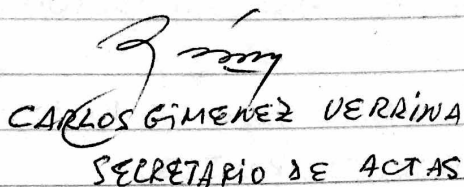 CARLOS GIMENEZ VERRINA
SECRETARIO DE ACTAS